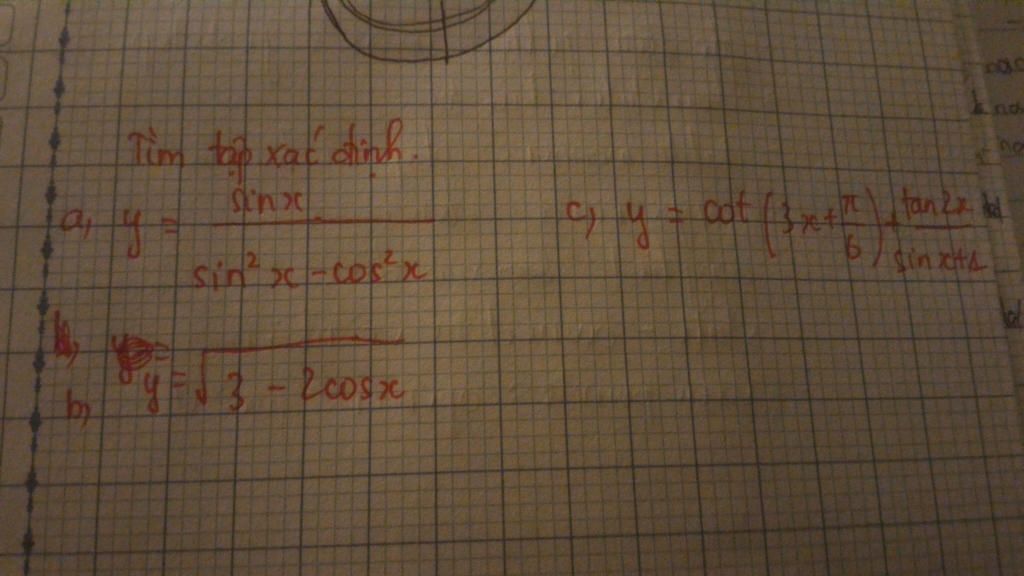 Tìm tập xác định.
a, y = sinx / (sin²x - cos²x)
c, y = cot(3x + π/6) + tan2x / (sinx+1)
b, y = √(3 - 2cosx)